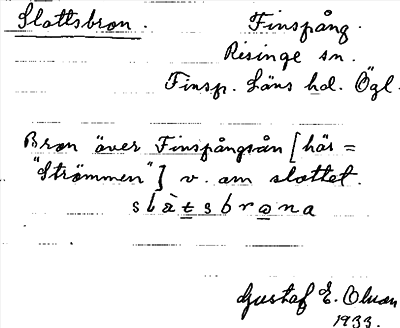 Slottsbron. Finspång.
Risinge sn.
Finsp. Läns hd. Ögl.
Bron över Finspångsån [här =
"Strömmen"] v. om slottet.
slàtsbrona
Gustaf E. Olson
1933.